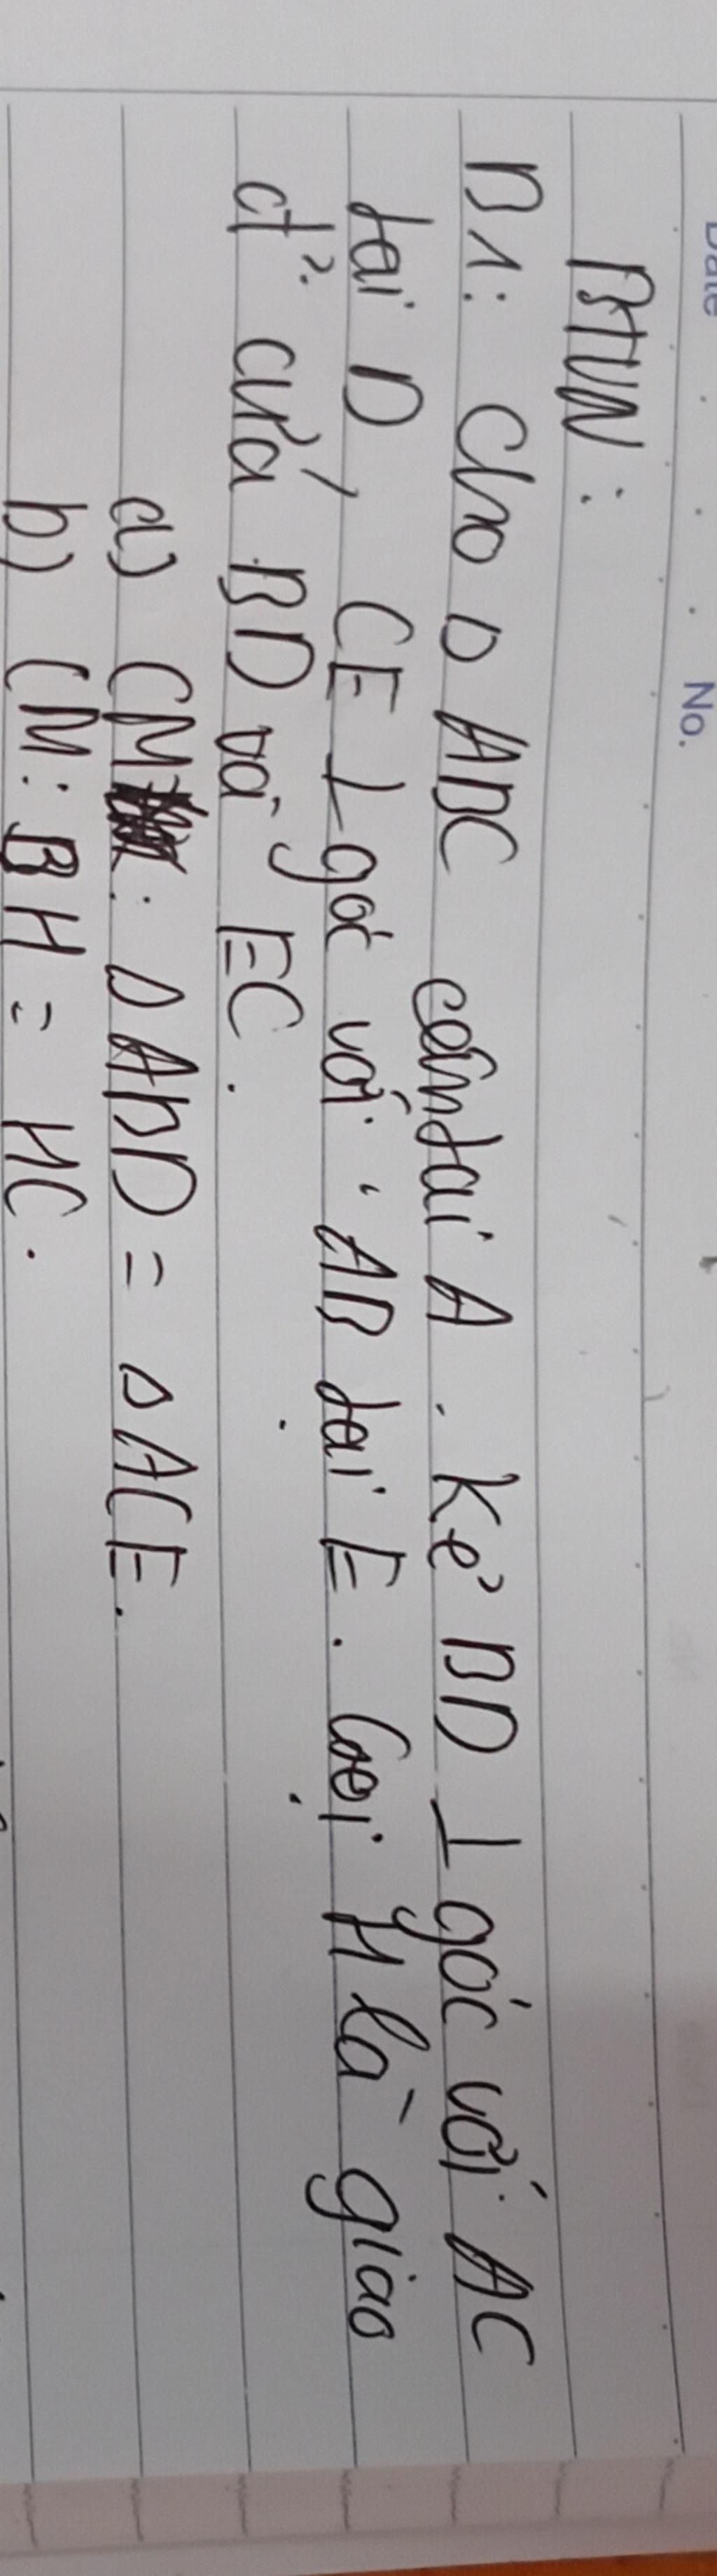 Date
No.
BTVN:
B1: Cho Δ ABC cân tại A. Kẻ BD ⊥ góc với AC
tại D, CE ⊥ góc với AB tại E. Gọi H là giao
đ² của BD và EC.
a) CM: Δ ABD = Δ ACE.
b) CM: BH = HC.